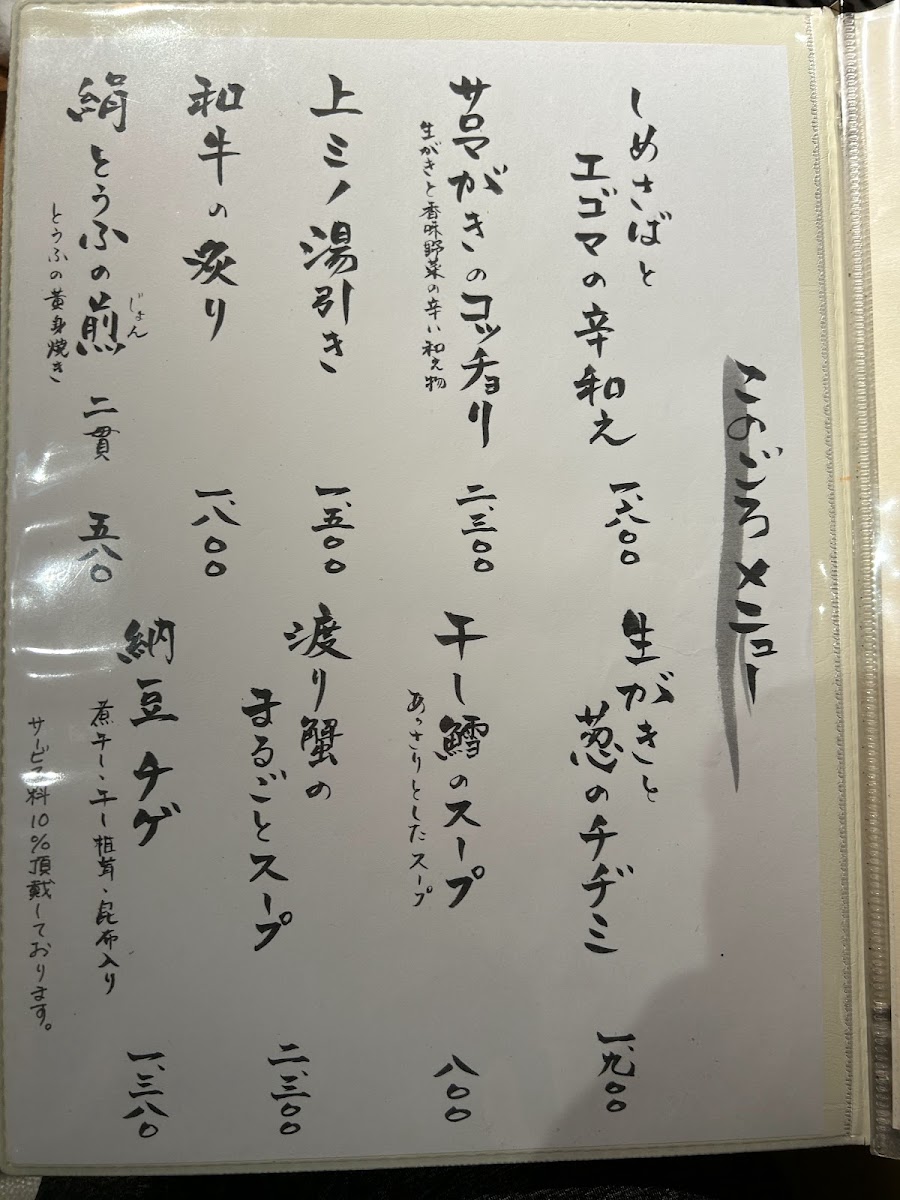 このごろメニュー
しめさばと
エゴマの辛和え
一、八〇〇
サロマがきのコッチョリ
生がきと香味野菜の辛い和え物
二、三〇〇
上ミノ湯引き
一、五〇〇
和牛の炙り
一、八〇〇
絹とうふの煎 二貫
じょん
とうふの黄身焼き
五八〇
生がきと
葱のチヂミ
一、九〇〇
干し鱈のスープ
あっさりとしたスープ
八〇〇
渡り蟹の
まるごとスープ
二、三〇〇
納豆チゲ
煮干し・干し椎茸・昆布入り
一、三八〇
サービス料10%頂戴しております。